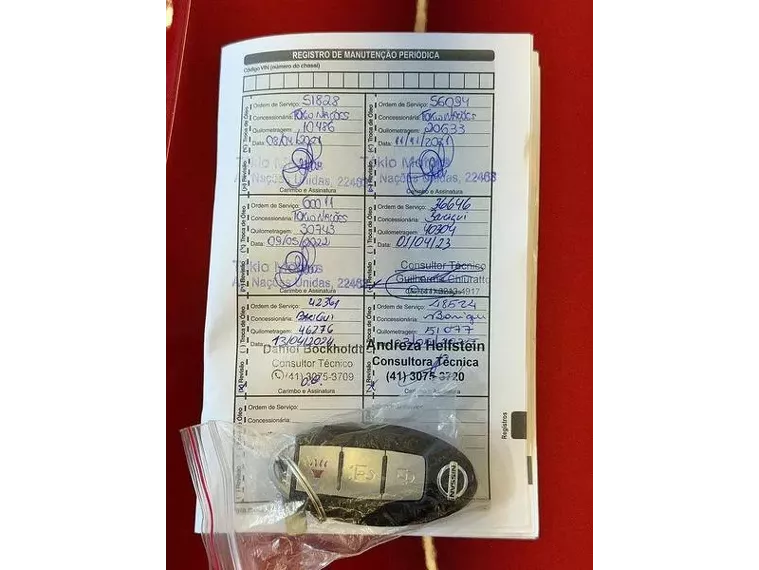 REGISTRO DE MANUTENÇÃO PERIÓDICA
Código VIN (número do chassi)
Ordem de Serviço: 51828
Concessionária: TOKIO NAÇÕES
Quilometragem: 10486
Data: 08/04/2021
Carimbo e Assinatura
( ) Troca de Óleo
Revisão
Tókio
Nações Unidas, 2246
Ordem de Serviço: 56094
Concessionária: TOKIO NAÇÕES
Quilometragem: 20633
Data: 11/11/2021
Carimbo e Assinatura
Troca de Óleo
Revisão
Tókio
Nações Unidas, 22468
Ordem de Serviço: 60011
Concessionária: TOKIO NAÇÕES
Quilometragem: 30743
Data: 09/05/2022
Carimbo e Assinatura
Troca de Óleo
Revisão
Tókio
Nações Unidas, 2246
Ordem de Serviço: 36646
Concessionária: Barigui
Quilometragem: 40304
Data: 01/04/23
Troca de Óleo
Revisão
Consultor Técnico
Guilherme Chiuratto
Ordem de Serviço: 42361
Concessionária: BARIGUI
Quilometragem: 46276
Data: 13/04/2024
( ) Troca de Óleo
Revisão
Daniel Bockholdt
Consultor Técnico
(41) 3075-3709
Carimbo e Assinatura
Ordem de Serviço: 18524
Concessionária: Barigui
Quilometragem: 51077
Troca de Óleo
Revisão
Andreza Hellstein
Consultora Técnica
(41) 3075-3720
Carimbo e Assinatura
Ordem de Serviço:
Concessionária:
Ordem de Serviço:
Registros
NISSAN